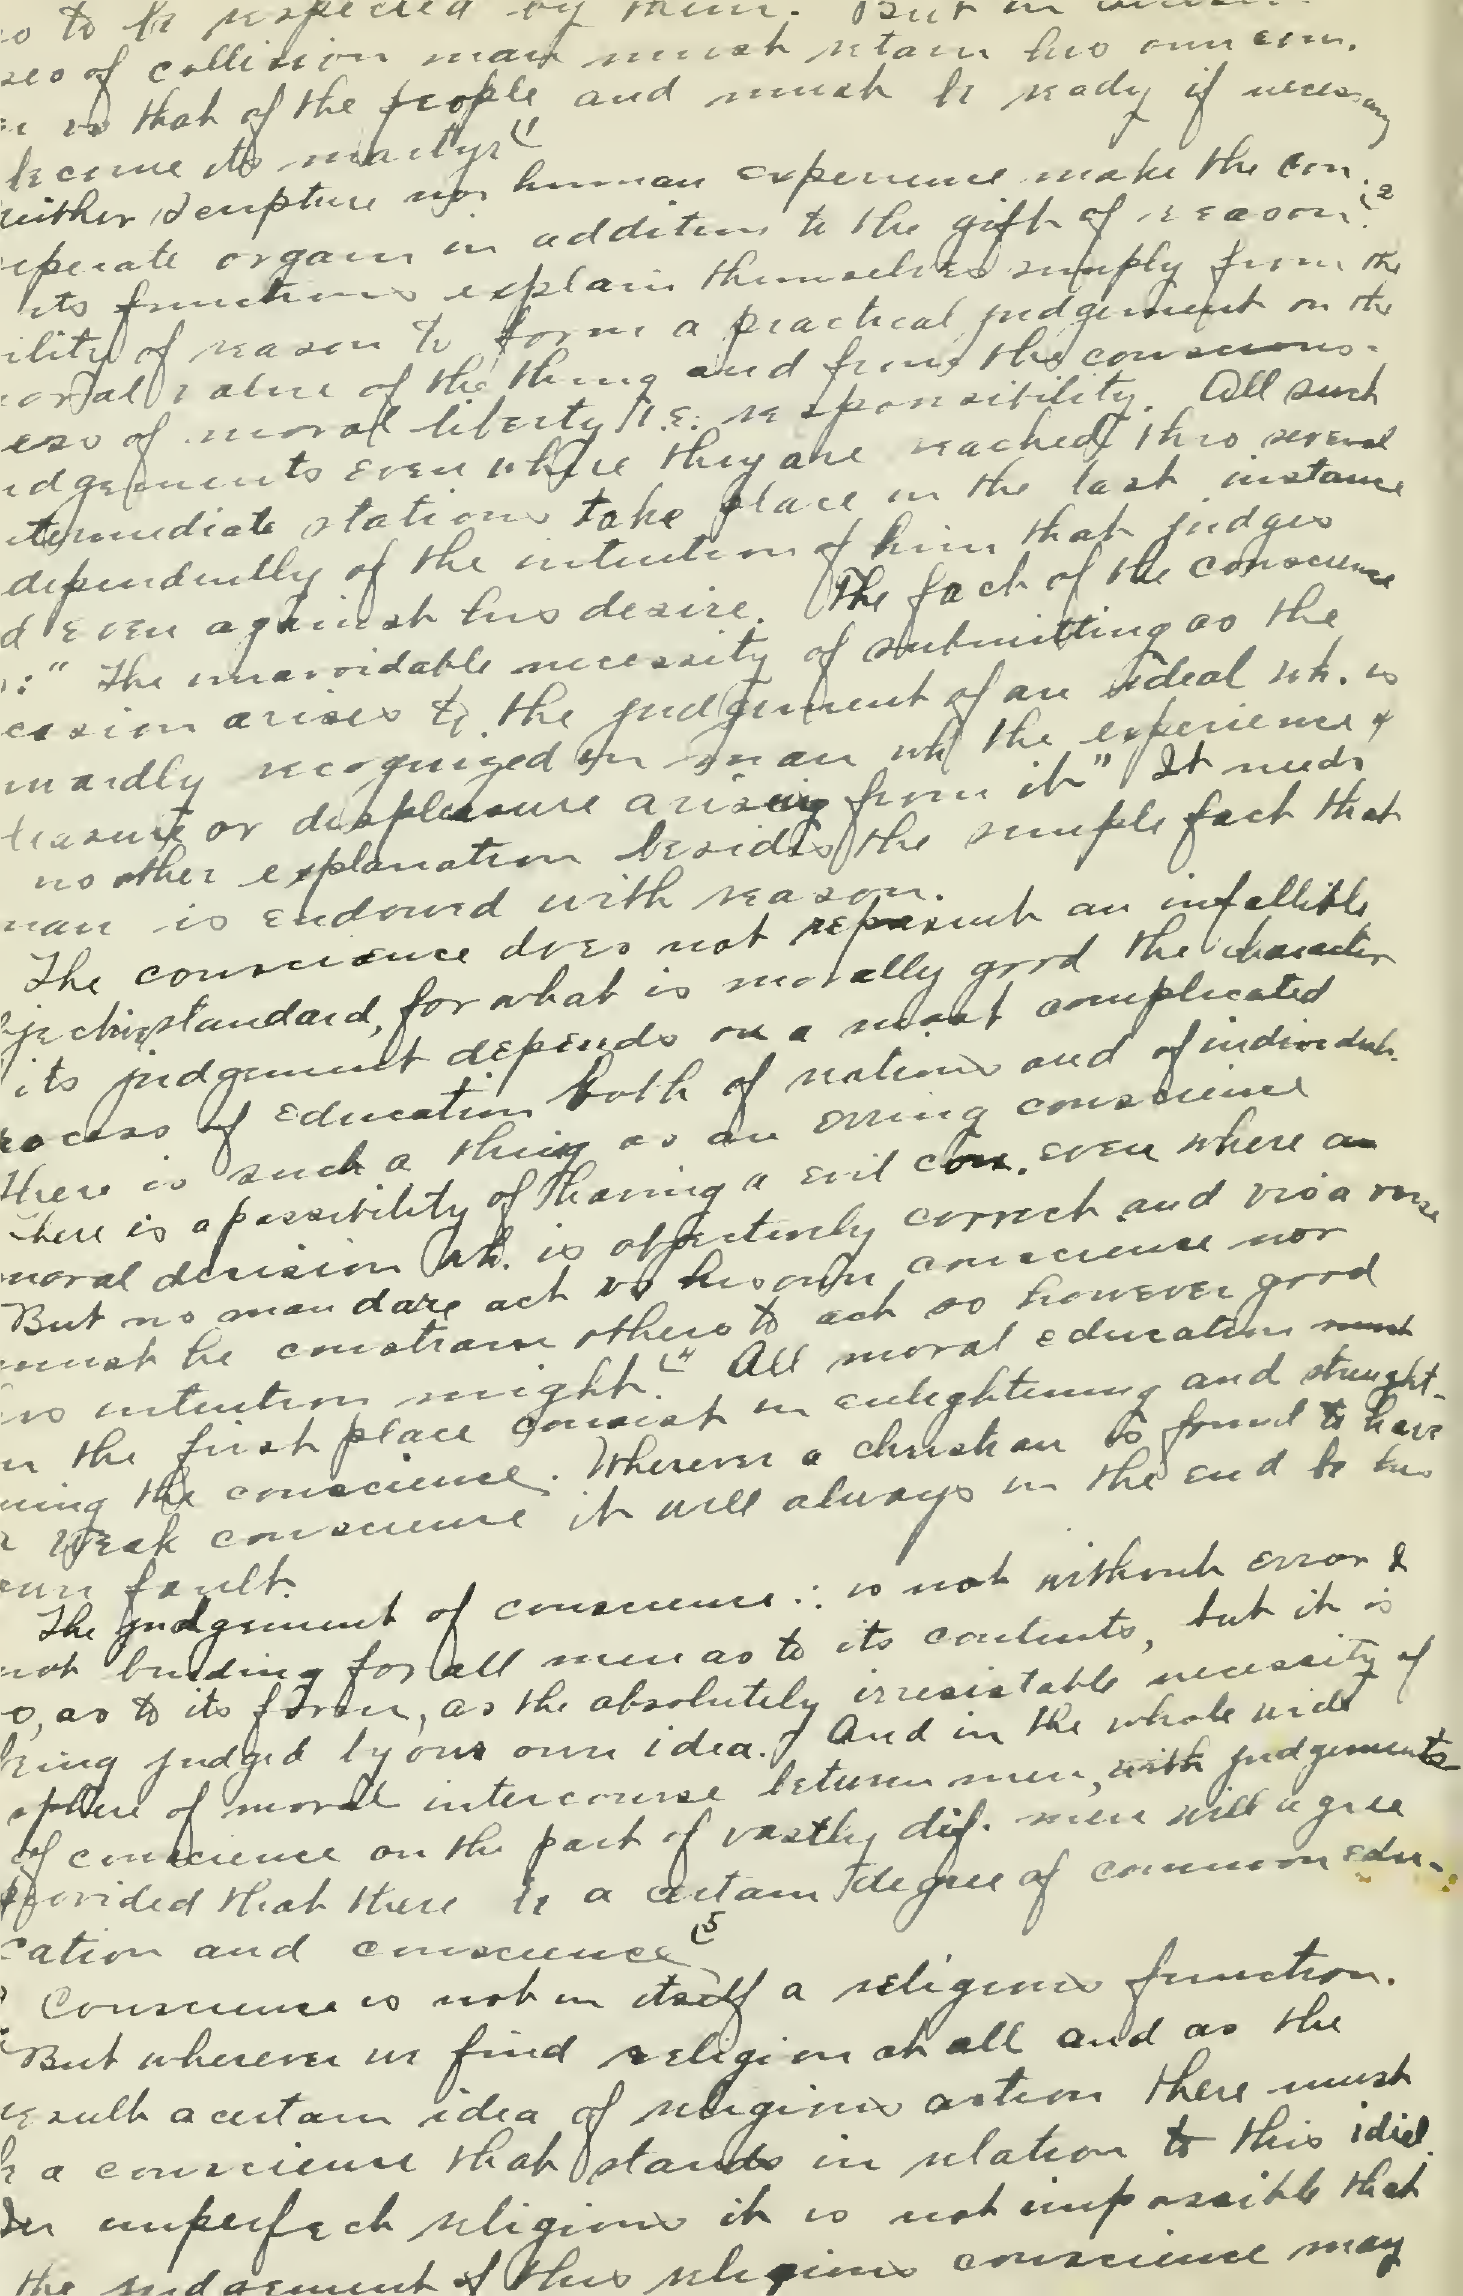 so to be respected by them. But in
ses of collision man must retain his own con.
is that of the people and must be ready if necessary
become its martyr (1
neither Scripture nor human experience make the con.
seperate organ in addition to the gift of reason. (2
its functions explain themselves simply from the
ility of reason to form a practical judgement on the
moral value of the thing and from the conscious-
ess of moral liberty i.e. responsibility. All such
udgements even where they are reached thro several
termediate stations take place in the last instance
dependently of the intention of him that judges
d even against his desire. The fact of the conscience
is: "The unavoidable necessity of submitting as the
casion arises to the judgement of an ideal wh. is
inwardly recognized in man wh the experience of
leasure or displeasure arising from it" It needs
no other explanation besides the simple fact that
man is endowed with reason.
The conscience does not represent an infallible
jective standard, for what is morally good the character
its judgement depends on a most complicated
rocess of education both of nations and of individuals.
There is such a thing as an erring conscience
There is a possibility of having a evil con. even where a
moral decision wh. is objectively correct and visa verse
But no man dare act vs his own conscience nor
must he constrain others to act so however good
his intention might. (4 All moral education must
in the first place consist in enlightening and straight-
ning the conscience. Wherever a christian is found to have
a weak conscience it will always in the end be his
own fault.
The judgement of conscience : is not without error &
not binding for all men as to its contents, but it is
so, as to its form, as the absolutely irresistable necessity of
being judged by ours own idea. And in the whole wide
sphere of moral intercourse between men, with judgements
of conscience on the part of vastly dif. men will agree
provided that there be a certain degree of common edu-
cation and conscience (5
Conscience is not in itself a religious function.
But wherever we find religion at all and as the
result a certain idea of religious action there must
be a conscience that stands in relation to this ideal.
In imperfect religions it is not impossible that
the judgement of this religious conscience may